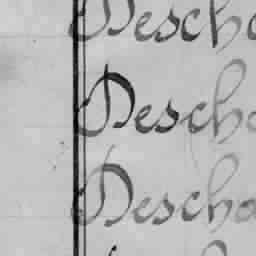 Descha
Descho
Descha